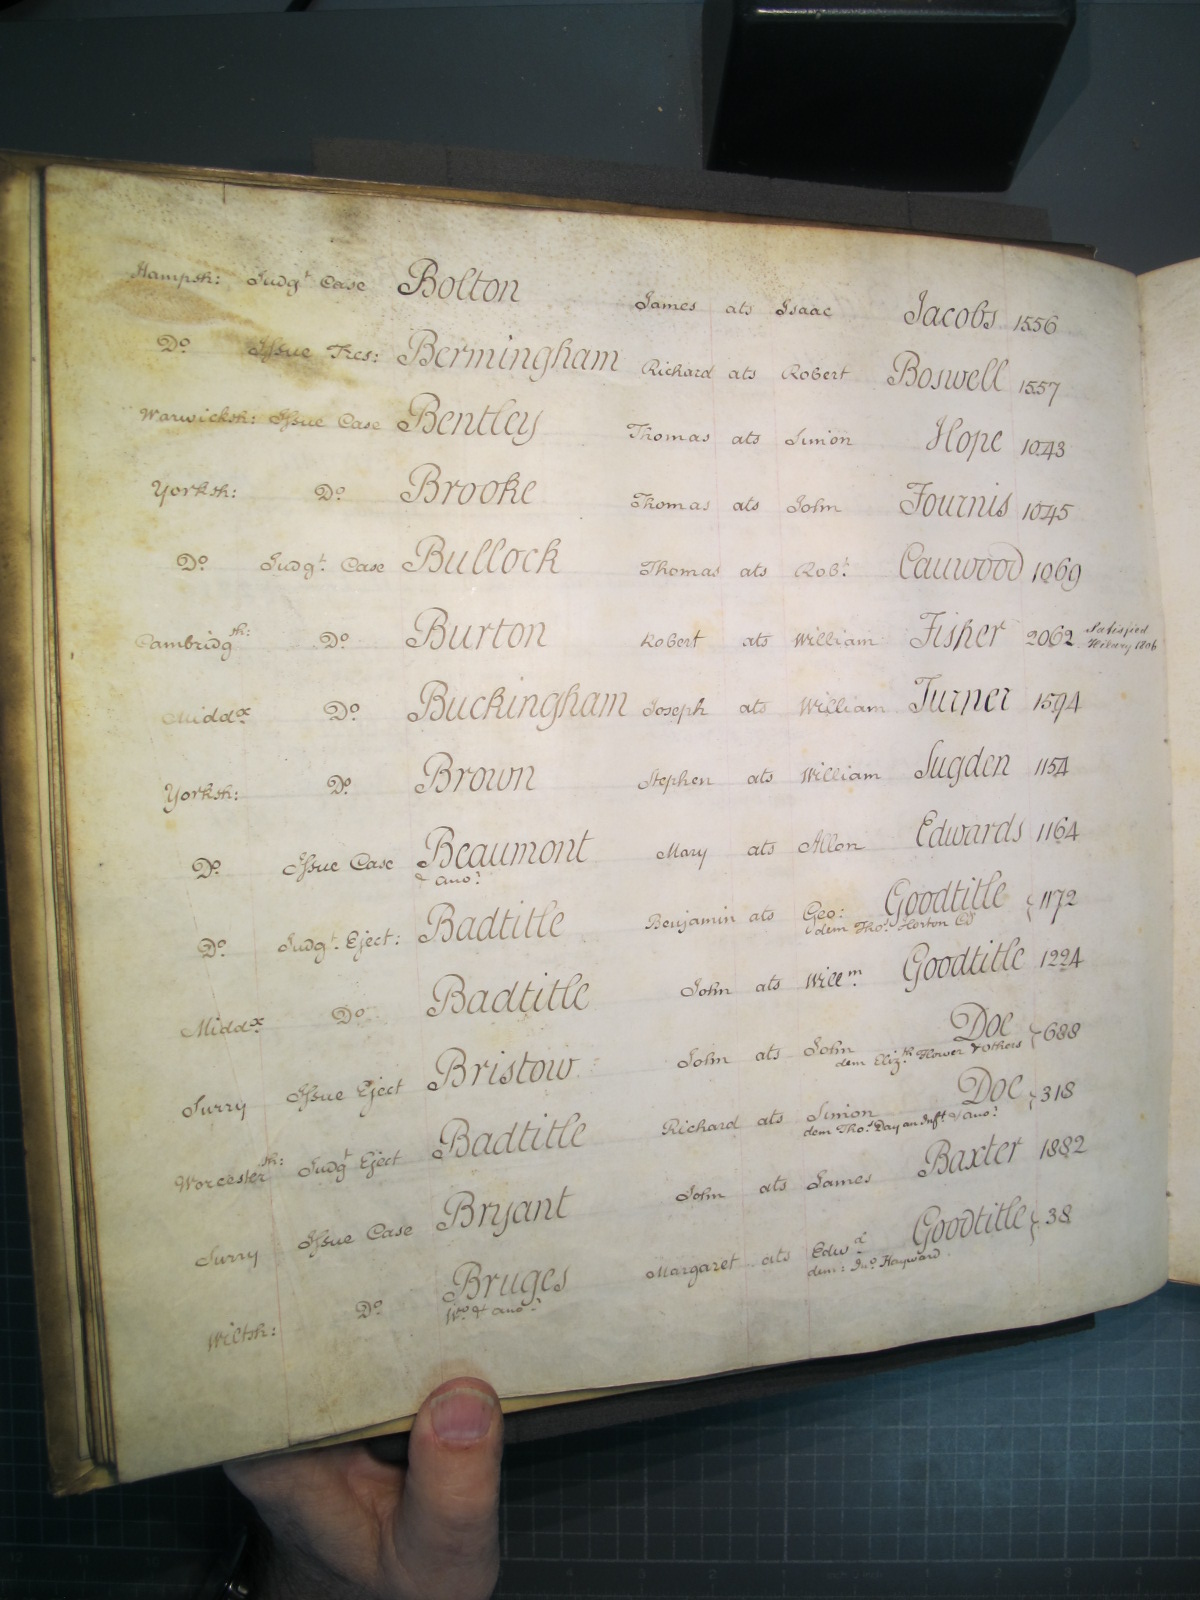 Hampsh: Judgt Case Bolton James ats Isaac Jacobs 1556
Do Issue Tres: Bermingham Richard ats Robert Boswell 1557
Warwicksh: Issue Case Bentley Thomas ats Simon Hope 1043
Yorksh: Do Brooke Thomas ats John Fournis 1045
Do Judgt. Case Bullock Thomas ats Robt. Cauwood 1069
Cambridgsh: Do Burton Robert ats William Fisher 2062 Satisfied
Hilary
Middx Do Buckingham Joseph ats William Turner 1594
Yorksh: Do Brown Stephen ats William Sugden 1154
Do Issue Case Beaumont Mary ats Allen Edwards 1164
& ano:
Do Judgt. Eject: Badtitle Benjamin ats Geo: Goodtitle 1172
dem Thos. Horton
Middx Do Badtitle John ats Willm. Goodtitle 1224
Surry Issue Eject Bristow John ats John Doe 688
dem Elizth Flower & others
Worcestersh: Judgt Eject Badtitle Richard ats Simon Doe 318
dem Thos Day an Inft & ano:
Surry Issue Case Bryant John ats James Baxter 1882
Wiltsh: Do Bruges Margaret ats Edwd Goodtitle 38
Wo. & ano: dem: Jno. Hayward